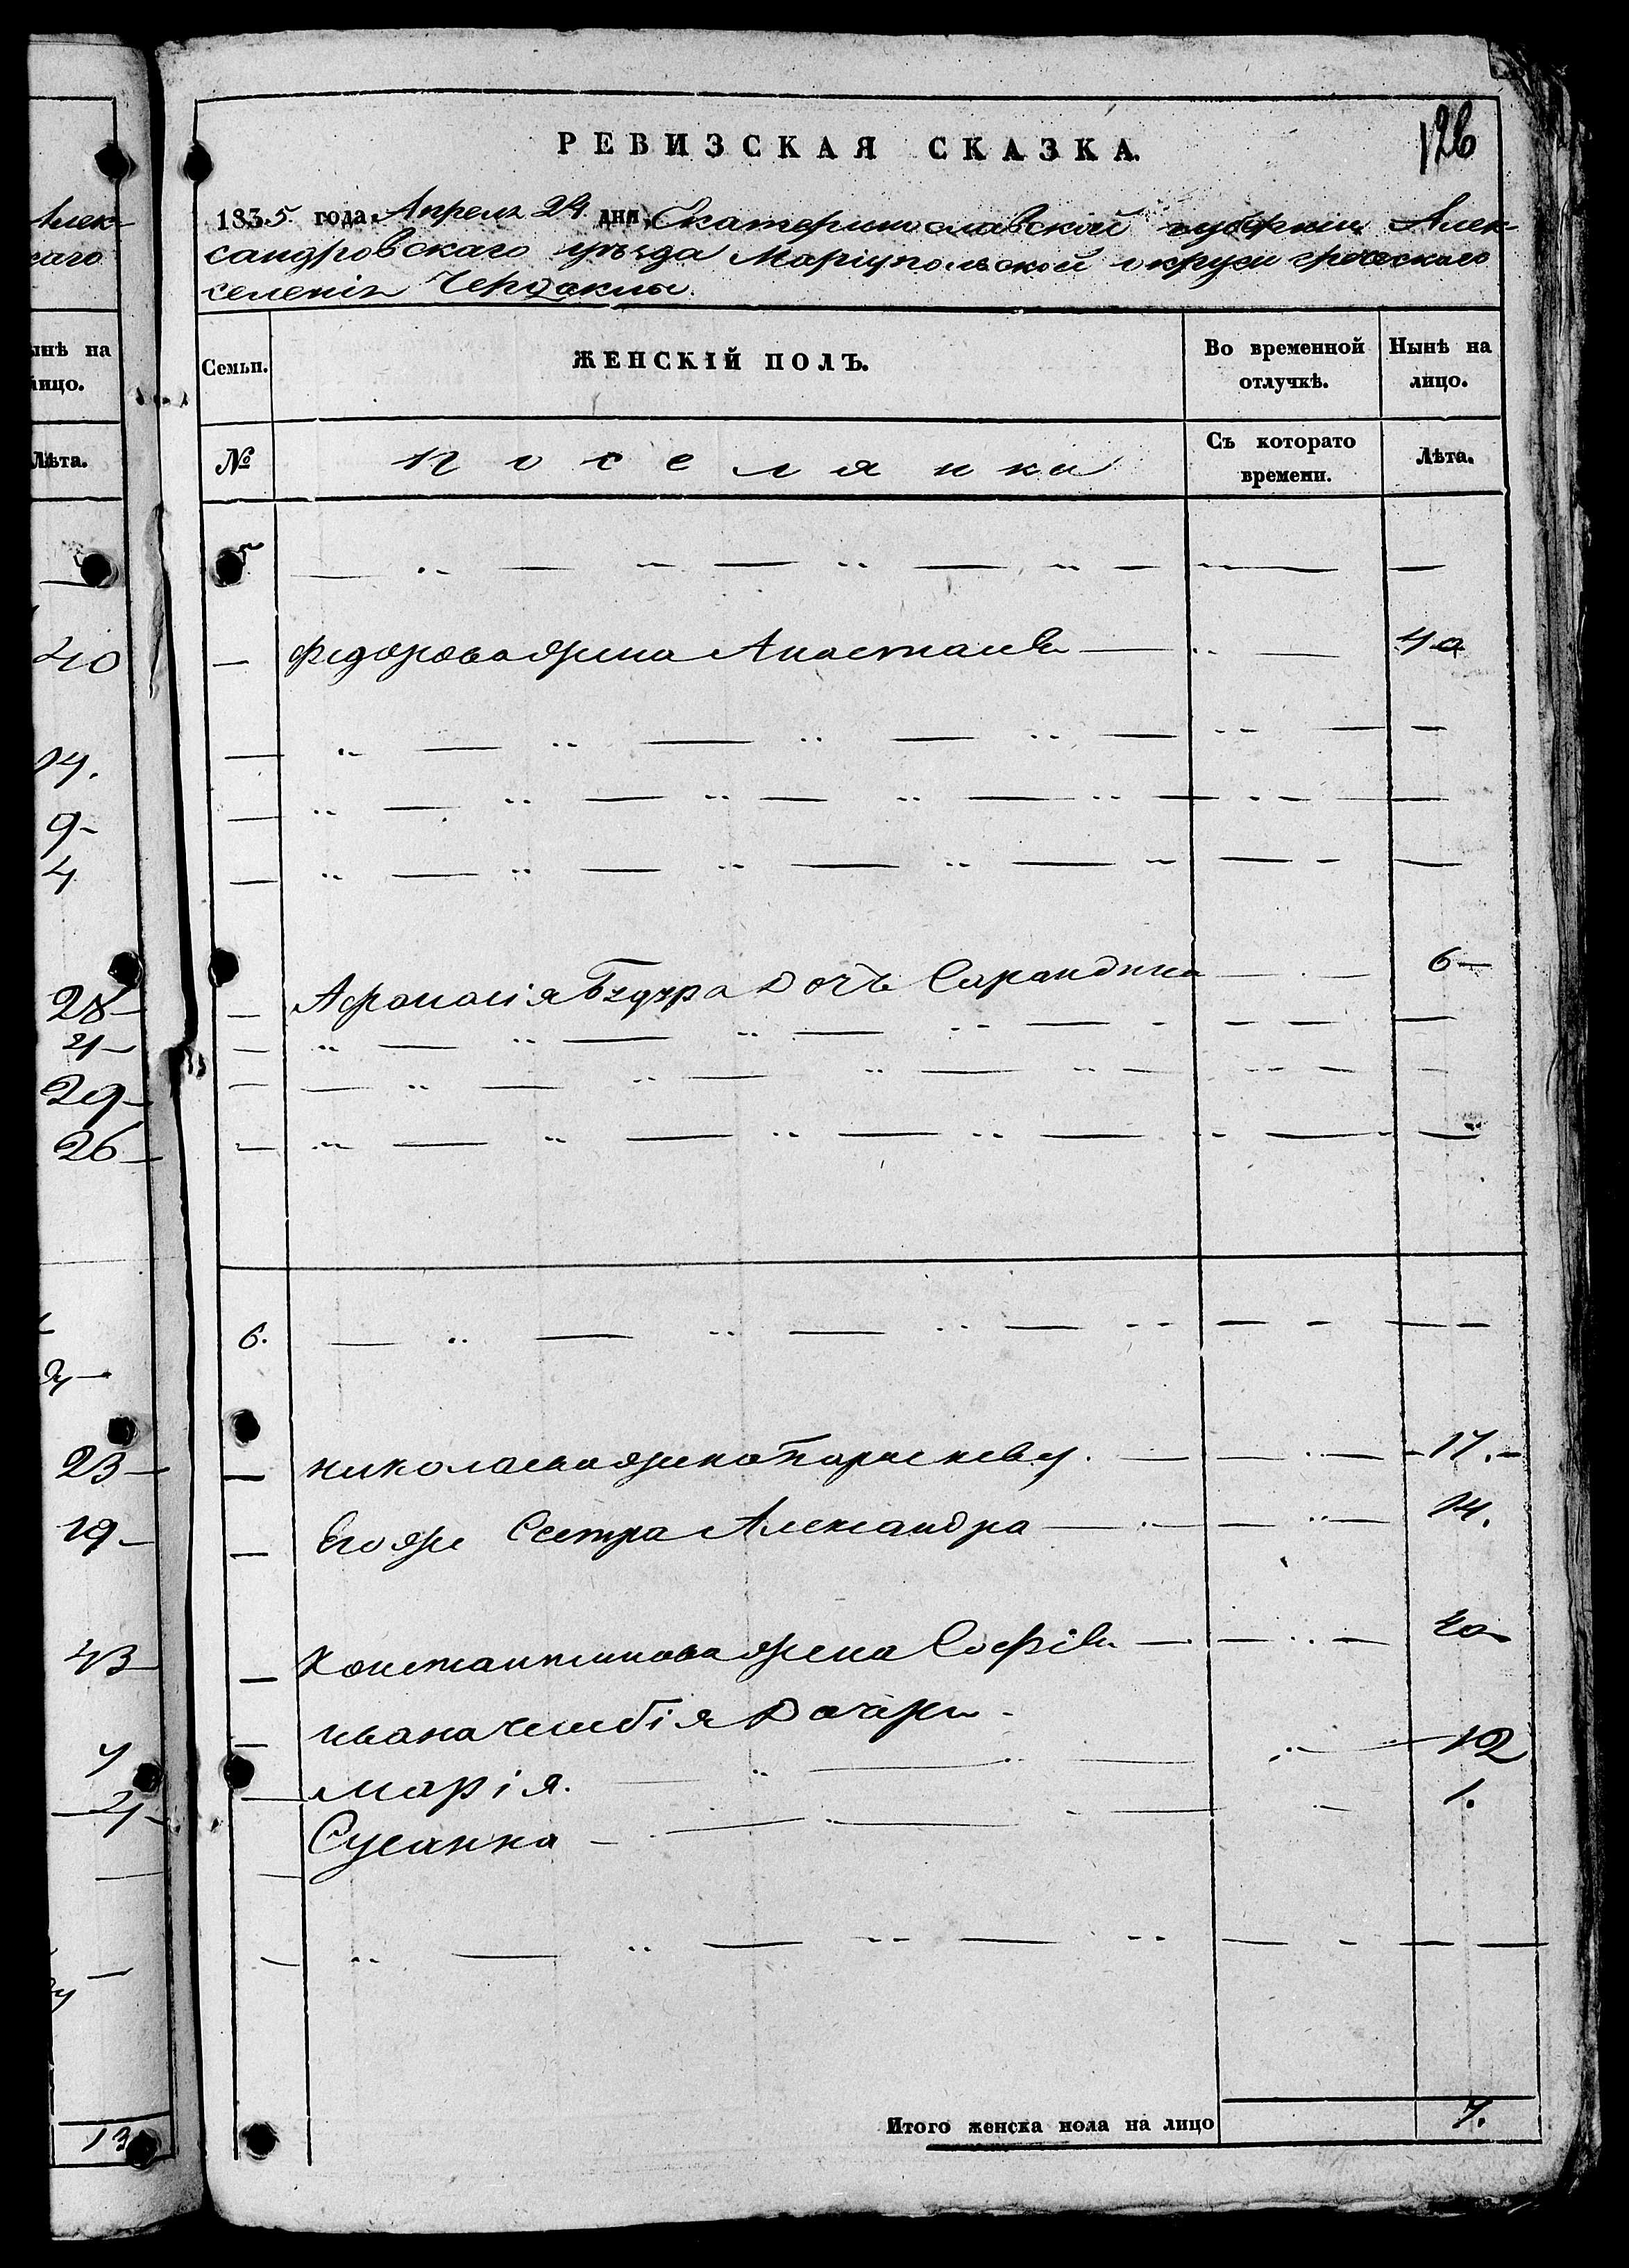 Алек-
каго
126
РЕВИЗСКАЯ СКАЗКА.
1835 года Апреля 24 дня Екатеринославской губерніи Алек-
сандровскаго уѣзда Маріупольской округи греческаго
селенія Чердаклы.
ынѣ на
лицо.
Семьи.
ЖЕНСКІЙ ПОЛЪ.
Во временной
отлучкѣ.
Нынѣ на
лицо.
Лѣта.
№
Поселянка
Съ которато
времени.
Лѣта.
5
40
Федорова жена Анастасія 40
14.
9
4
28
Афанасія дочь Сарандина 6
29
26
6.
23
Николаева жена Параскева. 17.
19
Егоже Сестра Александра 14.
43
Константинова жена Софія 40
дочери
Марія. 12
Сусанна 1.
13
Итого женска пола на лицо 7.